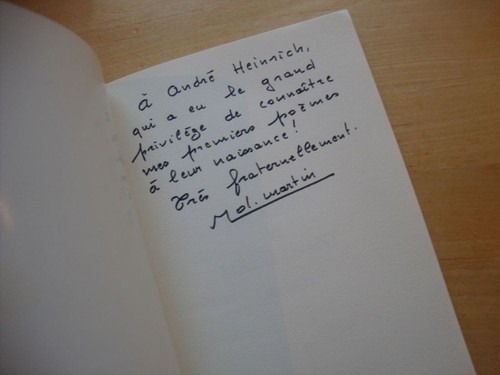 À André Heinrich,
qui a eu le grand
privilège de connaître
mes premiers poèmes
à leur naissance!
Très fraternellement.
Md. Martin